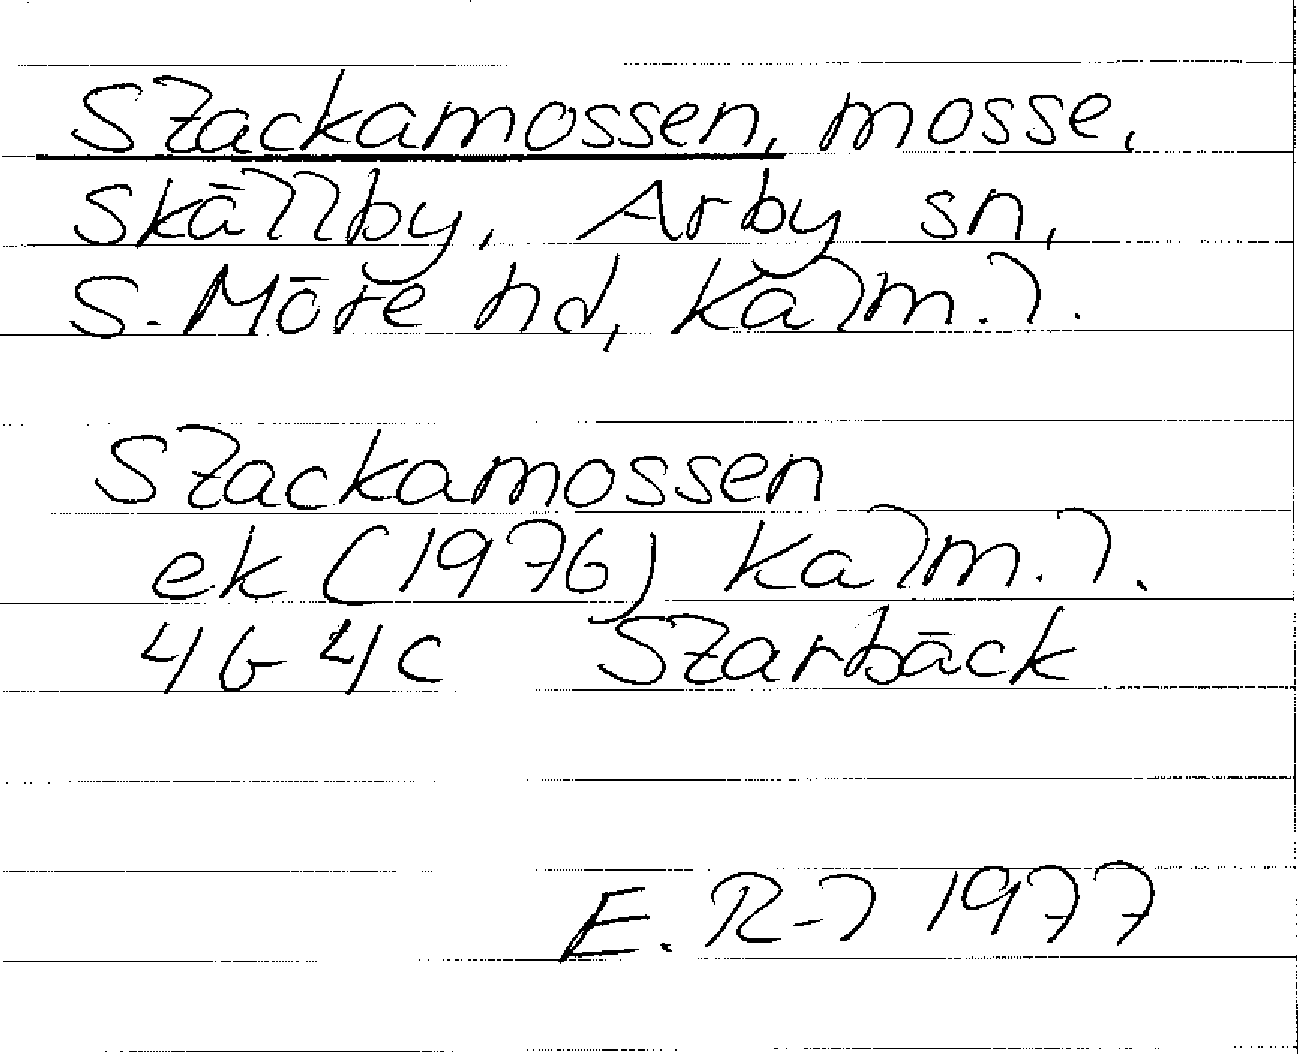 Slackamossen, mosse,
Skällby, Arby sn,
S. Möre hd, Kalm. l.
Slackamossen
ek (1976) Kalm. l.
4G 4c Slarbäck
E. R-l 1977